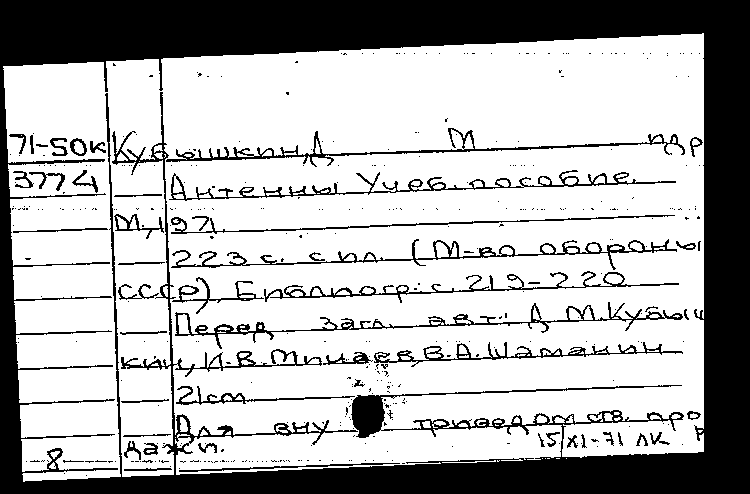 71-50к Кубышкин, Д М и др
3774 Антенны Учеб. пособие.
М., 1971.
223 с. с ил. (М-во обороны
СССР). Библиогр.: с. 219-220
Перед загл. авт.: Д М. Кубыш
кин, И.В. Минаев, В.А. Шаманин
21 см
Для вну триведомств. про
дажи. 15/XI-71 ЛК Р
8